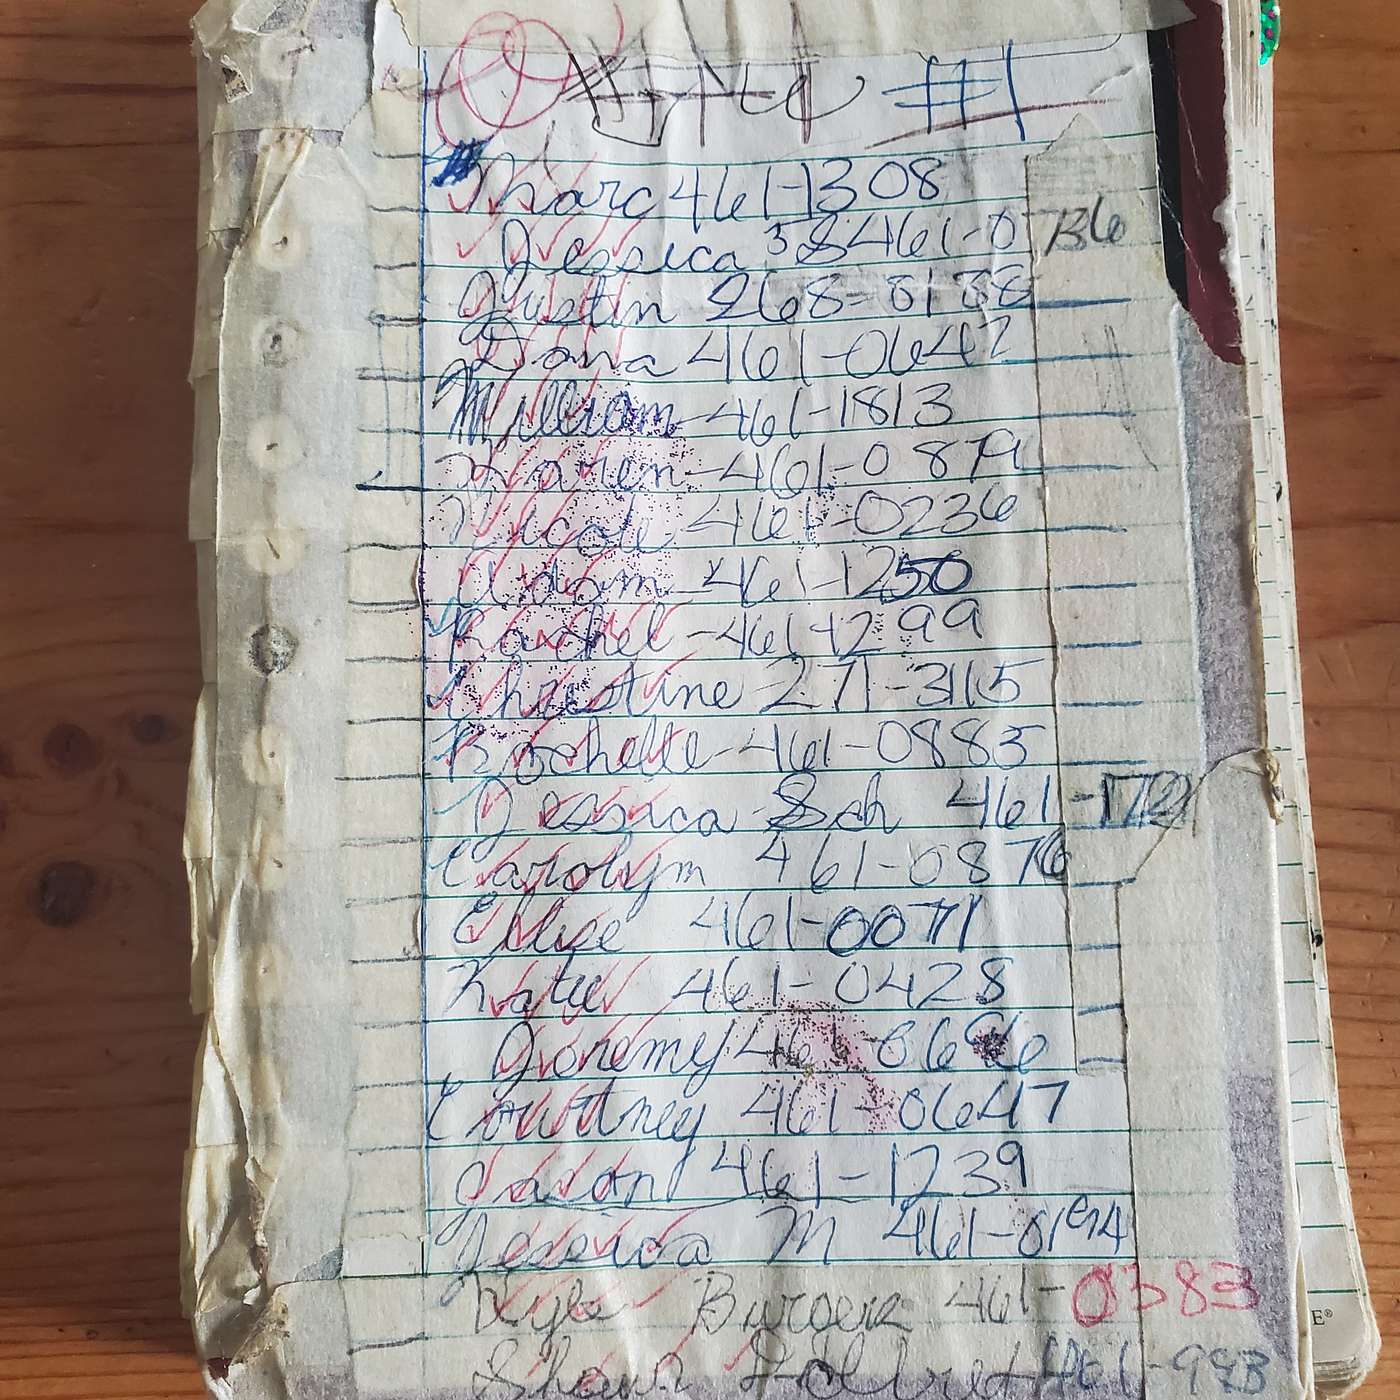 #1
Marc 461-1308
Jessica 461-0736
Justin 268-8138
Dana 461-0642
William-461-1813
Karen-461-0879
Nicole-461-0236
Adam-461-1250
Rachel-461-1299
Christine-271-3115
Rochelle-461-0883
Jessica Sch 461-1721
Carolym 461-0876
Ellise 461-0071
Katie 461-0428
Jeremy 461-
Courtney 461-0647
Jason 461-1239
Jessica M 461-
Kyle Burger 461-0383
Shawn 461-
E®